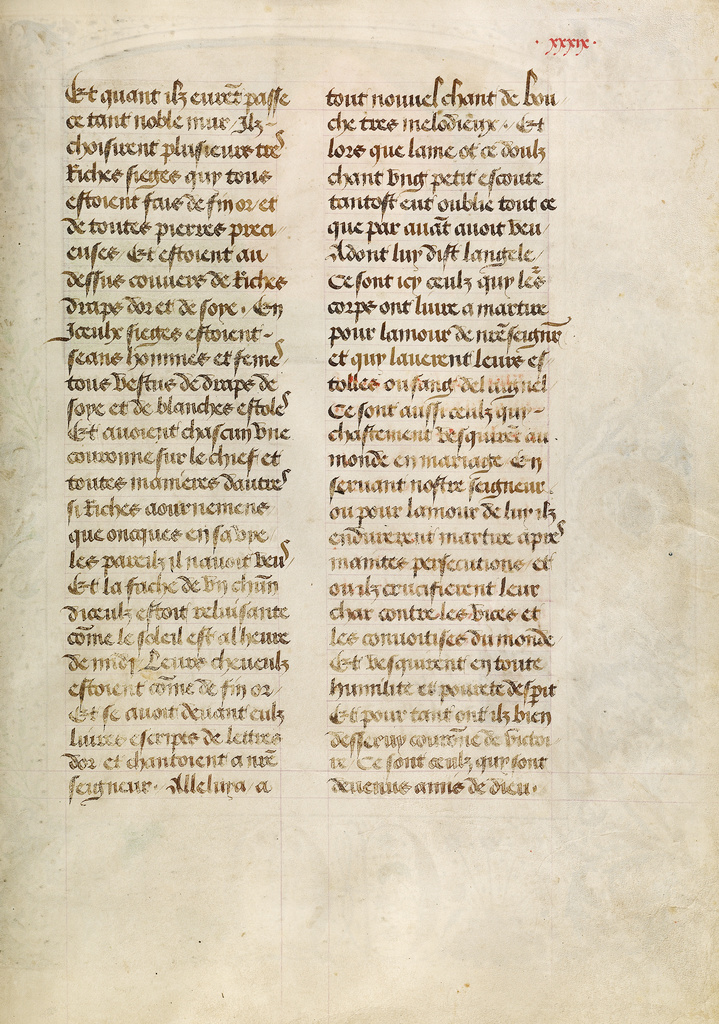 · xxxix ·
Et quant ilz eurēt passe
ce tant noble mur / Ilz -
choisirent plusieurs tres
Riches sieges quy tous
estoient fais de fin or / et
de toutes pierres preci /
euses · Et estoient au
dessus couuers de Riches
draps dor et de soye · En
Iceulx sieges estoient -
seans hommes et femēs
tous vestus de draps de
soye et de blanches estoles
Et auoient chascun vne
couronne sur le chief et
toutes manieres dautres
si Riches aournemens
que oncques en sa vye
les pareilz il nauoit veus
Et la face de vn chūn
diceulz estoit reluisante
cōme le soleil est a lheure
de midj / Leurs cheueulz
estoient cōme de fin or /
Et se auoit deuant eulz
liures escrips de lettres
dor et chantoient a nrē
seigneur · Alleluya / a
tout nouuel chant de bou /
che tres melodieux · Et
lors que lame ot ce doulz
chant vng petit escoute
tantost eut oublie tout ce
que par auāt auoit veu /
Adont luy dist langele /
Ce sont icy ceulz quy leūs
corps ont liure a martire
pour lamour de nrē seignr
et quy lauerent leurs es /
tolles ou sang de laignel
Ce sont aussi ceulz quy -
chastement vesquirēt au
monde en mariage En
seruant nostre seigneur
ou pour lamour de luy ilz
endurerent martire apres
maintes persecutions / et
ou ilz crucifierent leur
char contre les vices et
les conuoitises du monde
Et vesquirent en toute
humilite et pourete desp̄it
Et pour tant ont ilz bien
desseruy courōne de victoi /
re / Ce sont ceulz quy sont
deuenus amis de dieu ·